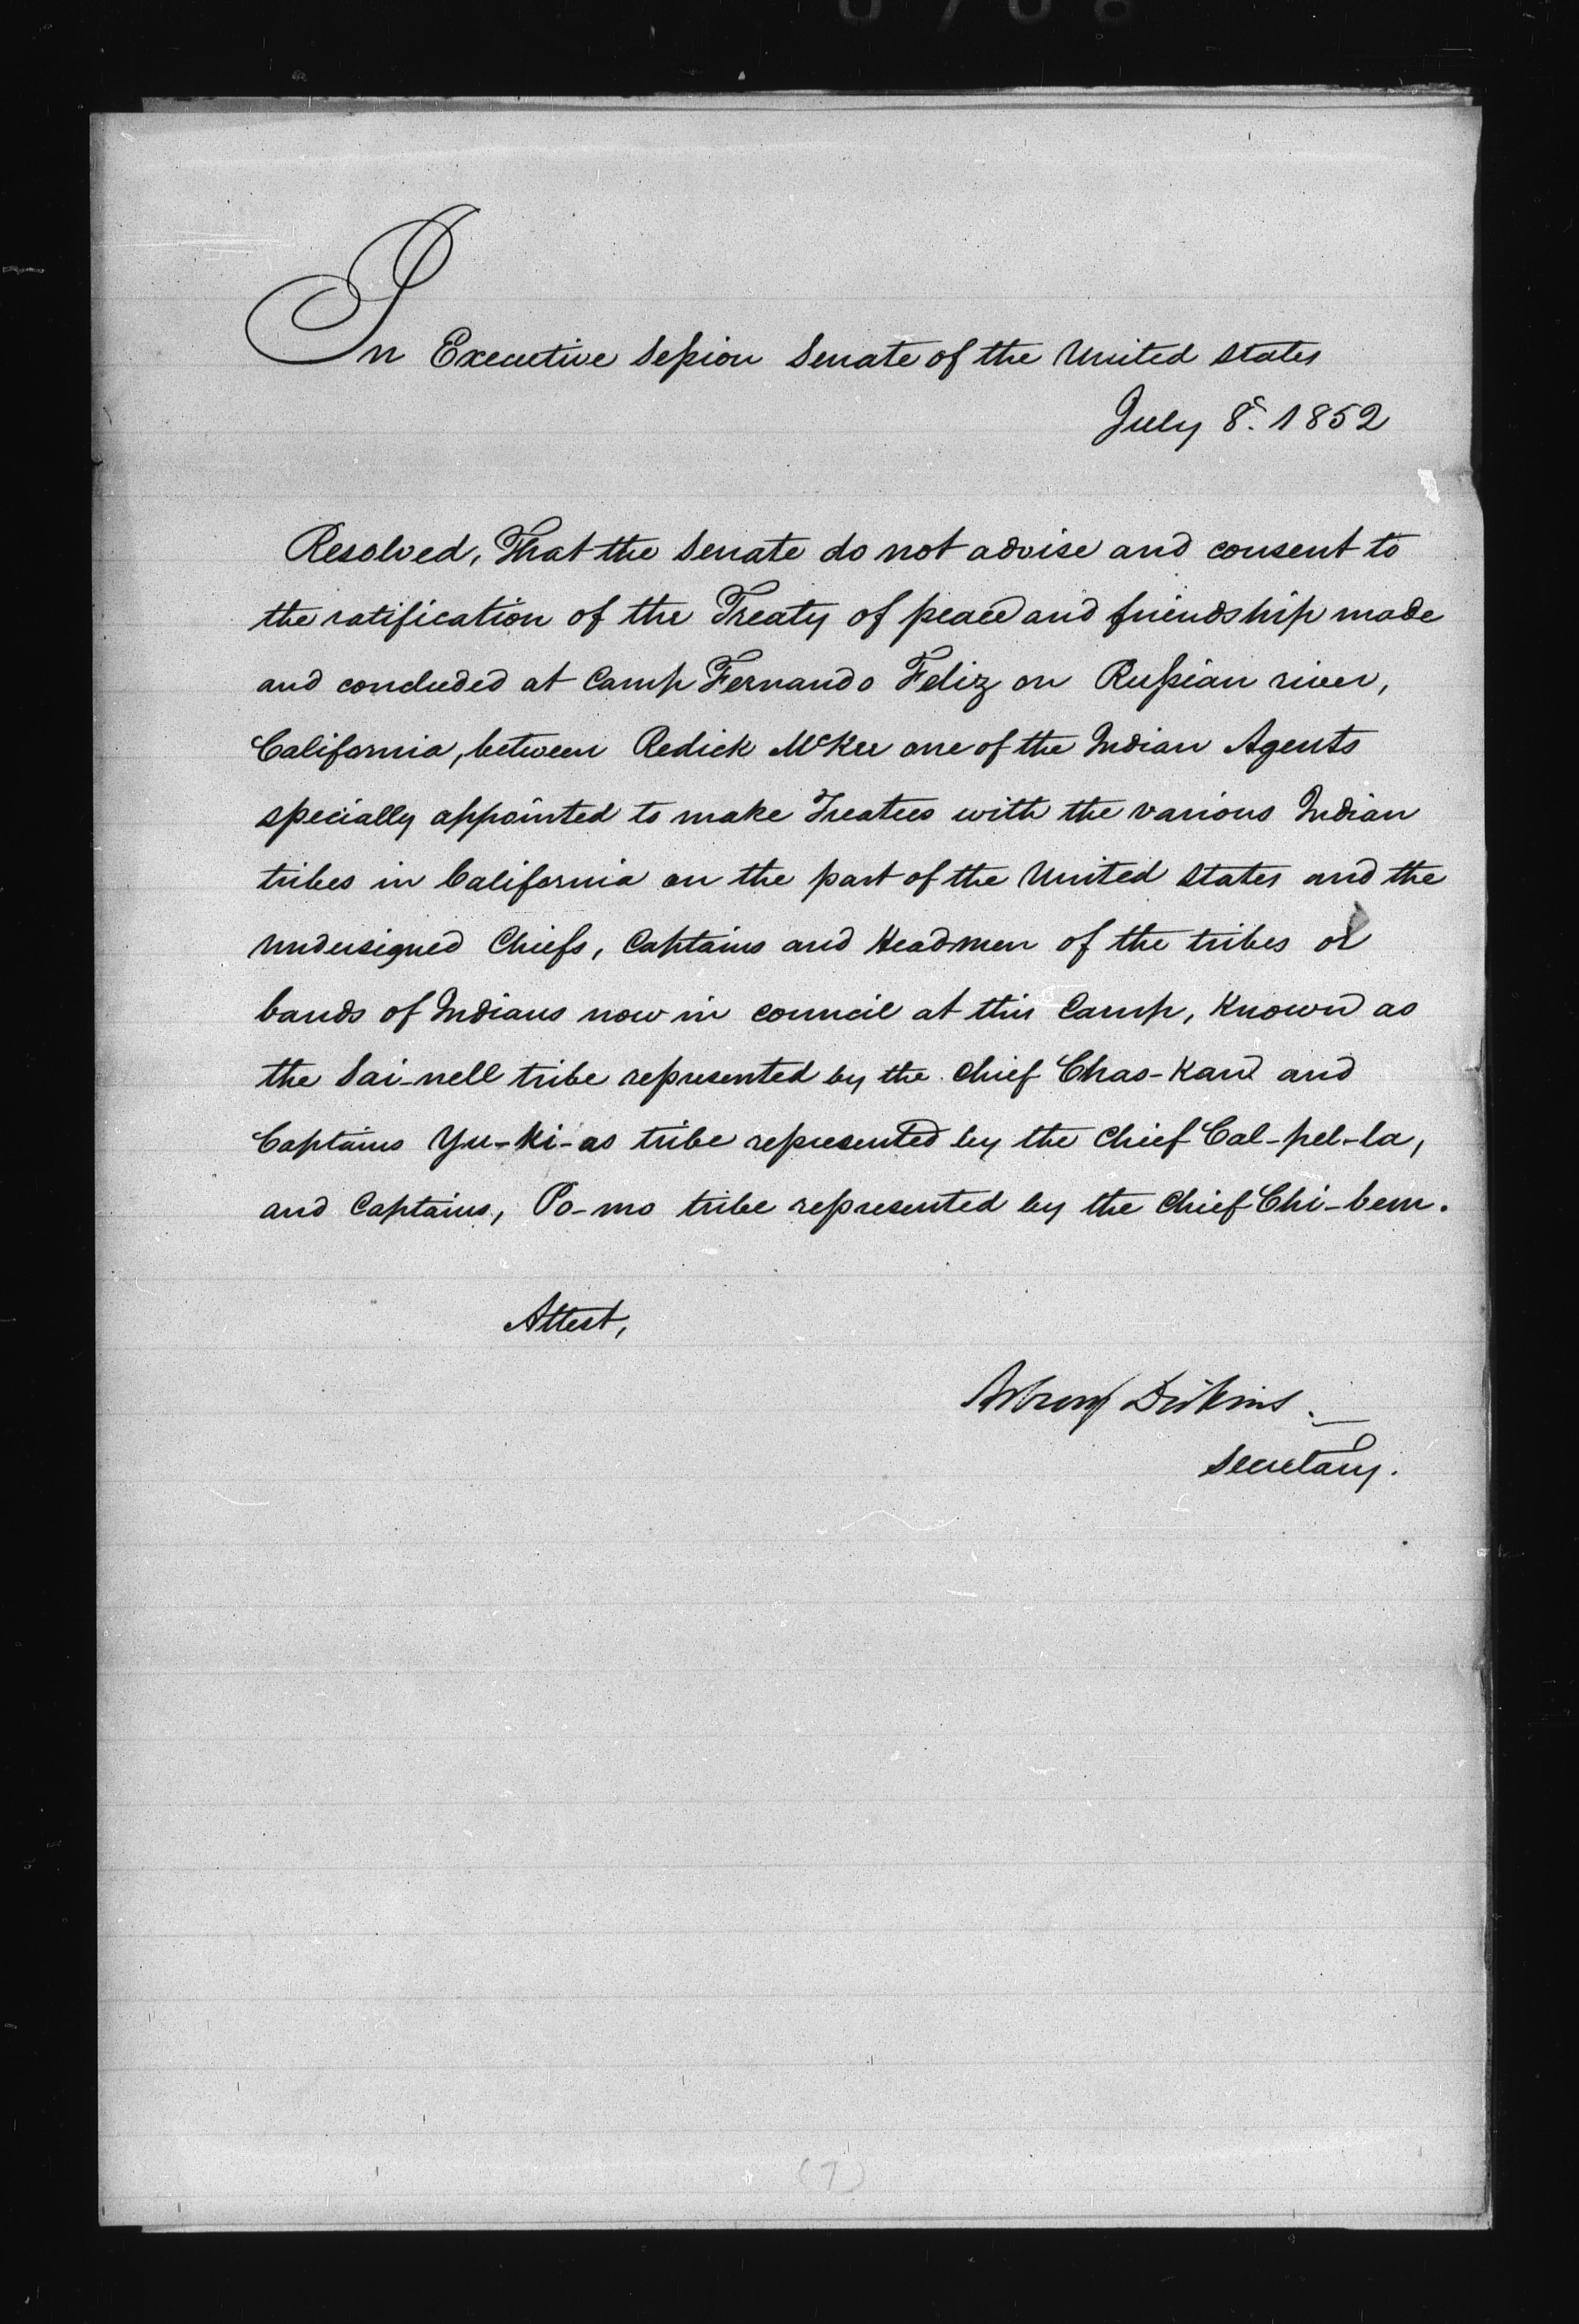 In Executive Session Senate of the United States
July 8. 1852
Resolved, That the Senate do not advise and consent to
the ratification of the Treaty of peace and friendship made
and concluded at Camp Fernando Feliz on Russian river,
California, between Redick McKee one of the Indian Agents
specially appointed to make Treaties with the various Indian
tribes in California on the part of the United States and the
undersigned Chiefs, Captains and Headmen of the tribes or
bands of Indians now in council at this Camp, known as
the Sai-nell tribe represented by the Chief Chas-Kan and
Captains Yu-Ki-as tribe represented by the Chief Cal-pel-la,
and Captains, Po-mo tribe represented by the Chief Chi-bem.
Attest,
Asbury Dickins.
Secretary.
(7)